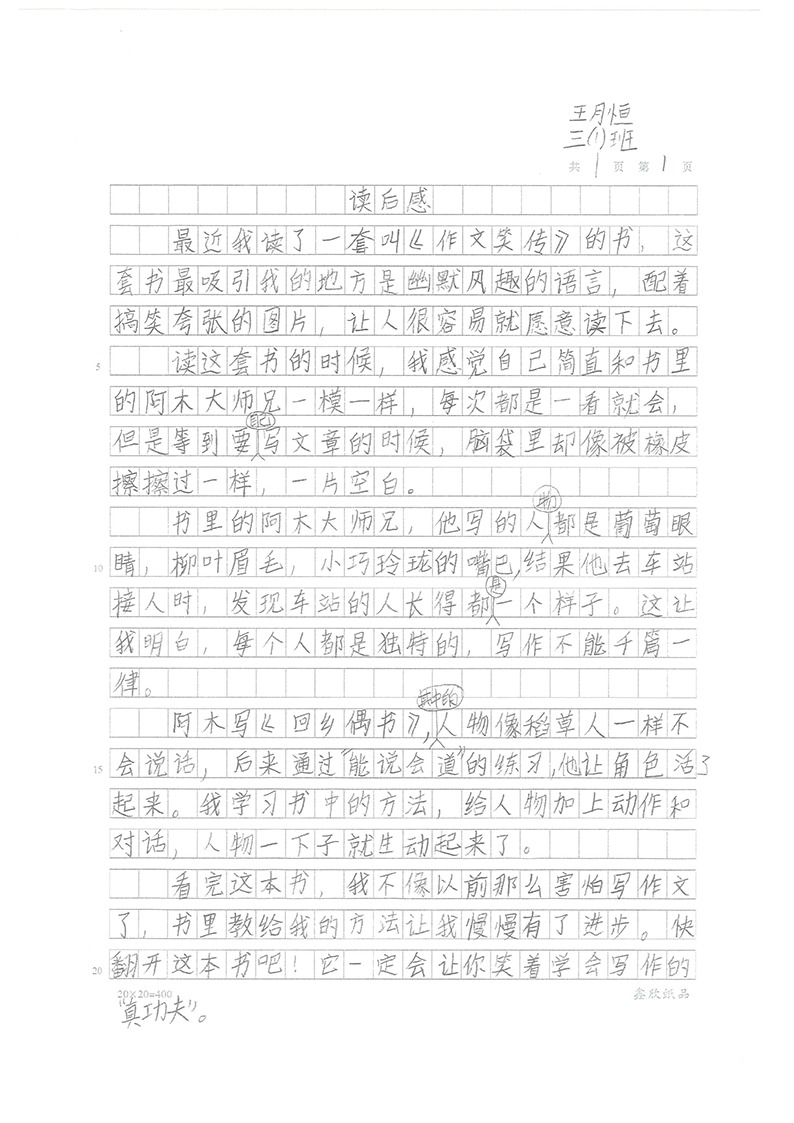 王月恒
三(1)班
共1页第1页
读后感
最近我读了一套叫《作文笑传》的书，这
套书最吸引我的地方是幽默风趣的语言，配着
搞笑夸张的图片，让人很容易就愿意读下去。
5 读这套书的时候，我感觉自己简直和书里
的阿木大师兄一模一样，每次都是一看就会，
但是等到要自己写文章的时候，脑袋里却像被橡皮
擦擦过一样，一片空白。
书里的阿木大师兄，他写的人物都是葡萄眼
10 睛，柳叶眉毛，小巧玲珑的嘴巴，结果他去车站
接人时，发现车站的人长得都是一个样子。这让
我明白，每个人都是独特的，写作不能千篇一
律。
阿木写《回乡偶书》，其中的人物像稻草人一样不
15 会说话，后来通过“能说会道”的练习，他让角色活了
起来。我学习书中的方法，给人物加上动作和
对话，人物一下子就生动起来了。
看完这本书，我不像以前那么害怕写作文
了，书里教给我的方法让我慢慢有了进步。快
20 翻开这本书吧！它一定会让你笑着学会写作的
20×20=400 鑫欣纸品
“真功夫”。